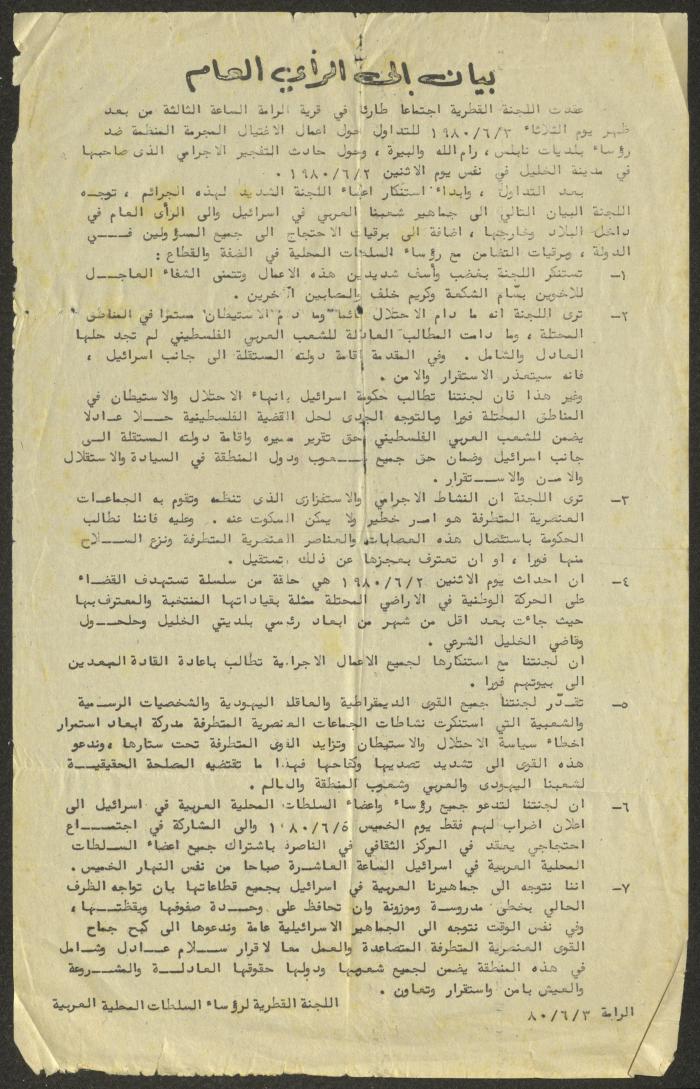 بيان إلى الرأي العام
عقدت اللجنة القطرية اجتماعا طارئا في قرية الرامة الساعة الثالثة من بعد
ظهر يوم الثلاثاء ١٩٨٠/٦/٣ للتداول حول اعمال الاغتيال المجرمة المنظمة ضد
رؤساء بلديات نابلس ، رام الله والبيرة ، وحول حادث التفجير الاجرامي الذى صاحبها
في مدينة الخليل في نفس يوم الاثنين ١٩٨٠/٦/٢ .
بعد التداول ، وابداء استنكار اعضاء اللجنة الشديد لهذه الجرائم ، توجه
اللجنة البيان التالي الى جماهير شعبنا العربي في اسرائيل والى الرأى العام في
داخل البلاد وخارجها ، اضافة الى برقيات الاحتجاج الى جميع المسؤولين فــــي
الدولة ، وبرقيات التضامن مع رؤساء السلطات المحلية في الضفة والقطاع :
١- تستنكر اللجنة بغضب وأسف شديدين هذه الاعمال وتتمنى الشفاء العاجــــل
للاخوين بسّام الشكعة وكريم خلف والمصابين الآخرين .
٢- ترى اللجنة انه ما دام الاحتلال قائما وما دام الاستيطان مستمرا في المناطق
المحتلة ، وما دامت المطالب العادلة للشعب العربي الفلسطيني لم تجد حلها
العادل والشامل . وفي المقدمة اقامة دولته المستقلة الى جانب اسرائيل ،
فانه سيتعذر الاستقرار والامن .
وغير هذا فان لجنتنا تطالب حكومة اسرائيل بانهاء الاحتلال والاستيطان في
المناطق المحتلة فورا وبالتوجه الجدى لحل القضية الفلسطينية حـــلا عــادلا
يضمن للشعب العربي الفلسطيني حق تقرير مصيره واقامة دولته المستقلة الــى
جانب اسرائيل وضمان حق جميع شـــعوب ودول المنطقة في السيادة والاستقلال
والامــن والاســــتقرار .
٣- ترى اللجنة ان النشاط الاجرامي والاستفزازى الذى تنظمه وتقوم به الجماعــات
العنصرية المتطرفة هو امر خطير ولا يمكن السكوت عنه . وعليه فاننا نطالب
الحكومة باستئصال هذه العصابات والعناصر العنصرية المتطرفة ونزع الســـلاح
منها فورا ، او ان تعترف بعجزها عن ذلك وتستقيل .
٤- ان احداث يوم الاثنين ١٩٨٠/٦/٢ هي حلقة من سلسلة تستهدف القضــاء
على الحركة الوطنية في الاراضي المحتلة ممثلة بقياداتها المنتخبة والمعترف بها
حيث جاءت بعد اقل من شهر من ابعاد رئسي بلديتي الخليل وحلحـــول
وقاضي الخليل الشرعي .
ان لجنتنا مع استنكارها لجميع الاعمال الاجرامية تطالب باعادة القادة المبعدين
الى بيوتهم فورا .
٥- تقدّر لجنتنا جميع القوى الديمقراطية والعاقلة اليهودية والشخصيات الرســمية
والشعبية التي استنكرت نشاطات الجماعات العنصرية المتطرفة مدركة ابعاد استمرار
اخطاء سياسة الاحتلال والاستيطان وتزايد القوى المتطرفة تحت ستارها ، وندعو
هذه القوى الى تشديد تصديها وكفاحها فهذا ما تقتضيه المصلحة الحقيقيـــة
لشعبنا اليهودى والعربي وشعوب المنطقة والعالم .
٦- ان لجنتنا لتدعو جميع رؤساء واعضاء السلطات المحلية العربية في اسرائيل الى
اعلان اضراب لهم فقط يوم الخميس ١٩٨٠/٦/٥ والى المشاركة في اجتمـــاع
احتجاجي يعقد في المركز الثقافي في الناصرة باشتراك جميع اعضاء الســلطات
المحلية العربية في اسرائيل الساعة العاشــرة صباحا من نفس النهار الخميس .
٧- اننا نتوجه الى جماهيرنا العربية في اسرائيل بجميع قطاعاتها بان تواجه الظرف
الحالي بخطى مدروسـة وموزونة وان تحافظ على وحـــدة صفوفها ويقظتــــها ،
وفي نفس الوقت نتوجه الى الجماهير الاسرائيلية عامة وندعوها الى كبح جماح
القوى العنصرية المتطرفة المتصاعدة والعمل معا لاقرار ســـلام عــادل وشــامل
في هذه المنطقة يضمن لجميع شعوبها ودولها حقوقها العادلـــة والمشـــروعة
والعيش بامن واستقرار وتعاون .
اللجنة القطرية لرؤساء السلطات المحلية العربية
الرامة ٨٠/٦/٣